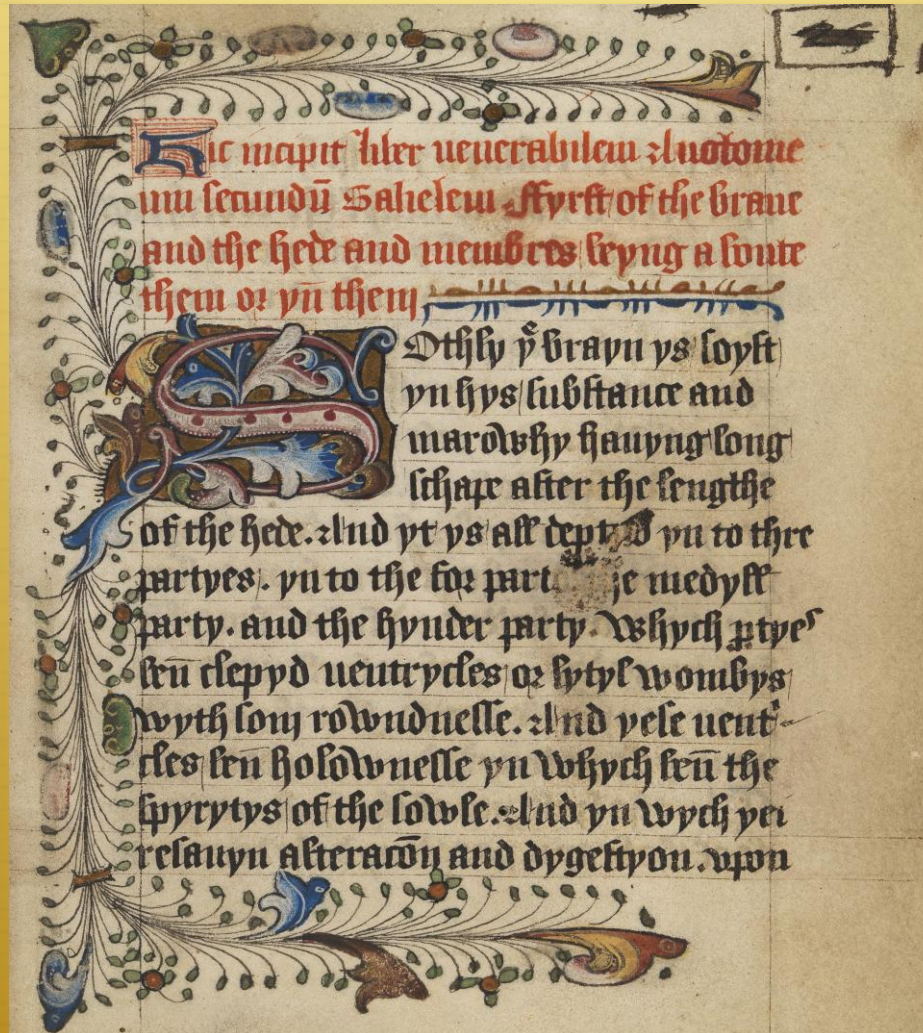 Hic incipit liber venerabilem Anotome
mu secundū Galielem. ffyrst of the brane
and the hede and membres beyng a boute
them or yn̄ them
Sothly yͤ brayn ys soyft
yn hys substance and
marowhy hauyng long
schape after the lengthe
of the hede. And yt ys all dep d yn to thre
partyes. yn to the for part e medyll
party. and the hynder party. Whych ꝑtyeˢ
ben̄ clepyd uentrycles or lytyl wombys
wyth som rowndnesse. And yese uent
cles ben holownesse yn Whych ben̄ the
spyrytys of the sowle. And yn wych yei
resauyn alteracōn and dygestyon. vpon